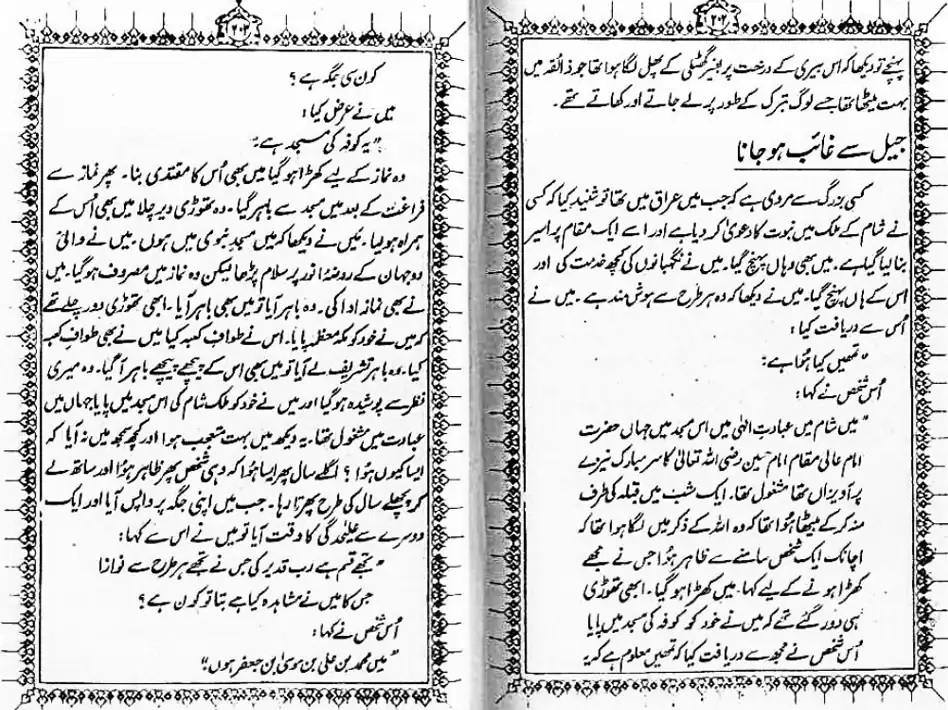 ۲۰۲
پہنچے تو دیکھا کہ اس بیری کے درخت پر بغیر گٹھلی کے پھل لگا ہوا تھا جو ذائقہ میں
بہت میٹھا تھا جسے لوگ تبرک کے طور پر لے جاتے اور کھاتے تھے۔
جیل سے غائب ہو جانا
کسی بزرگ سے مروی ہے کہ جب میں عراق میں تھا تو شنید کیا کہ کسی
نے شام کے ملک میں نبوت کا دعویٰ کر دیا ہے اور اسے ایک مقام پر اسیر
بنا لیا گیا ہے۔ میں بھی وہاں پہنچ گیا۔ میں نے نگہبانوں کی کچھ خدمت کی اور
اس کے ہاں پہنچ گیا۔ میں نے دیکھا کہ وہ ہر طرح سے ہوش مند ہے۔ میں نے
اُس سے دریافت کیا:
"تمھیں کیا ہُوا ہے؟
اُس شخص نے کہا:
"میں شام میں عبادتِ الٰہی میں اس مسجد میں جہاں حضرت
امام عالی مقام امام حسین رضی اللہ تعالیٰ کا سر مبارک نیزے
پر آویزاں تھا مشغول تھا۔ ایک شب میں قبلہ کی طرف
منہ کر کے بیٹھا ہُوا تھا کہ وہ اللہ کے ذکر میں لگا ہوا تھا کہ
اچانک ایک شخص سامنے سے ظاہر ہُوا جس نے مجھے
کھڑا ہونے کے لیے کہا۔ میں کھڑا ہو گیا۔ ابھی تھوڑی
ہی دور گئے تھے کہ میں نے خود کو کوفہ کی مسجد میں پایا
اُس شخص نے مجھ سے دریافت کیا کہ تمھیں معلوم ہے کہ یہ
کون سی جگہ ہے؟
میں نے عرض کیا:
"یہ کوفہ کی مسجد ہے۔"
وہ نماز کے لیے کھڑا ہو گیا میں بھی اُس کا مقتدی بنا۔ پھر نماز سے
فراغت کے بعد میں مسجد سے باہر گیا۔ وہ تھوڑی دیر چلا میں بھی اُس کے
ہمراہ ہو لیا۔ میں نے دیکھا کہ میں مسجد نبوی میں ہوں۔ میں نے والیٔ
دو جہان کے روضۂ انور پر سلام پڑھا لیکن وہ نماز میں مصروف ہو گیا۔ میں
نے بھی نماز ادا کی۔ وہ باہر آیا تو میں بھی باہر آیا۔ ابھی تھوڑی دور چلے تھے
کہ میں نے خود کو مکہ معظمہ پایا۔ اس نے طواف کعبہ کیا میں نے بھی طواف کعبہ
کیا۔ وہ باہر تشریف لے آیا تو میں بھی اس کے پیچھے پیچھے باہر آ گیا۔ وہ میری
نظر سے پوشیدہ ہو گیا اور میں نے خود کو ملک شام کی اس مسجد میں پایا جہاں میں
عبادت میں مشغول تھا۔ یہ دیکھ میں بہت متعجب ہوا اور کچھ سمجھ میں نہ آیا کہ
ایسا کیوں ہُوا؟ اگلے سال پھر ایسا ہُوا کہ وہی شخص پھر ظاہر ہُوا اور ساتھ لے
کر پچھلے سال کی طرح پھرتا رہا۔ جب میں اپنی جگہ پر واپس آیا اور ایک
دوسرے سے علیحدگی کا وقت آیا تو میں نے اس سے کہا:
"تجھے قسم ہے رب قدیر کی جس نے تجھے ہر طرح سے نوازا
جس کا میں نے مشاہدہ کیا ہے بتا تو کون ہے؟
اُس شخص نے کہا:
"میں محمد بن علی بن موسیٰ ابن جعفر ہوں۔"